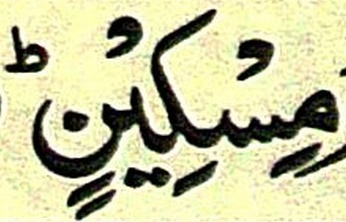 مِسْكِيْنٍ ؕ